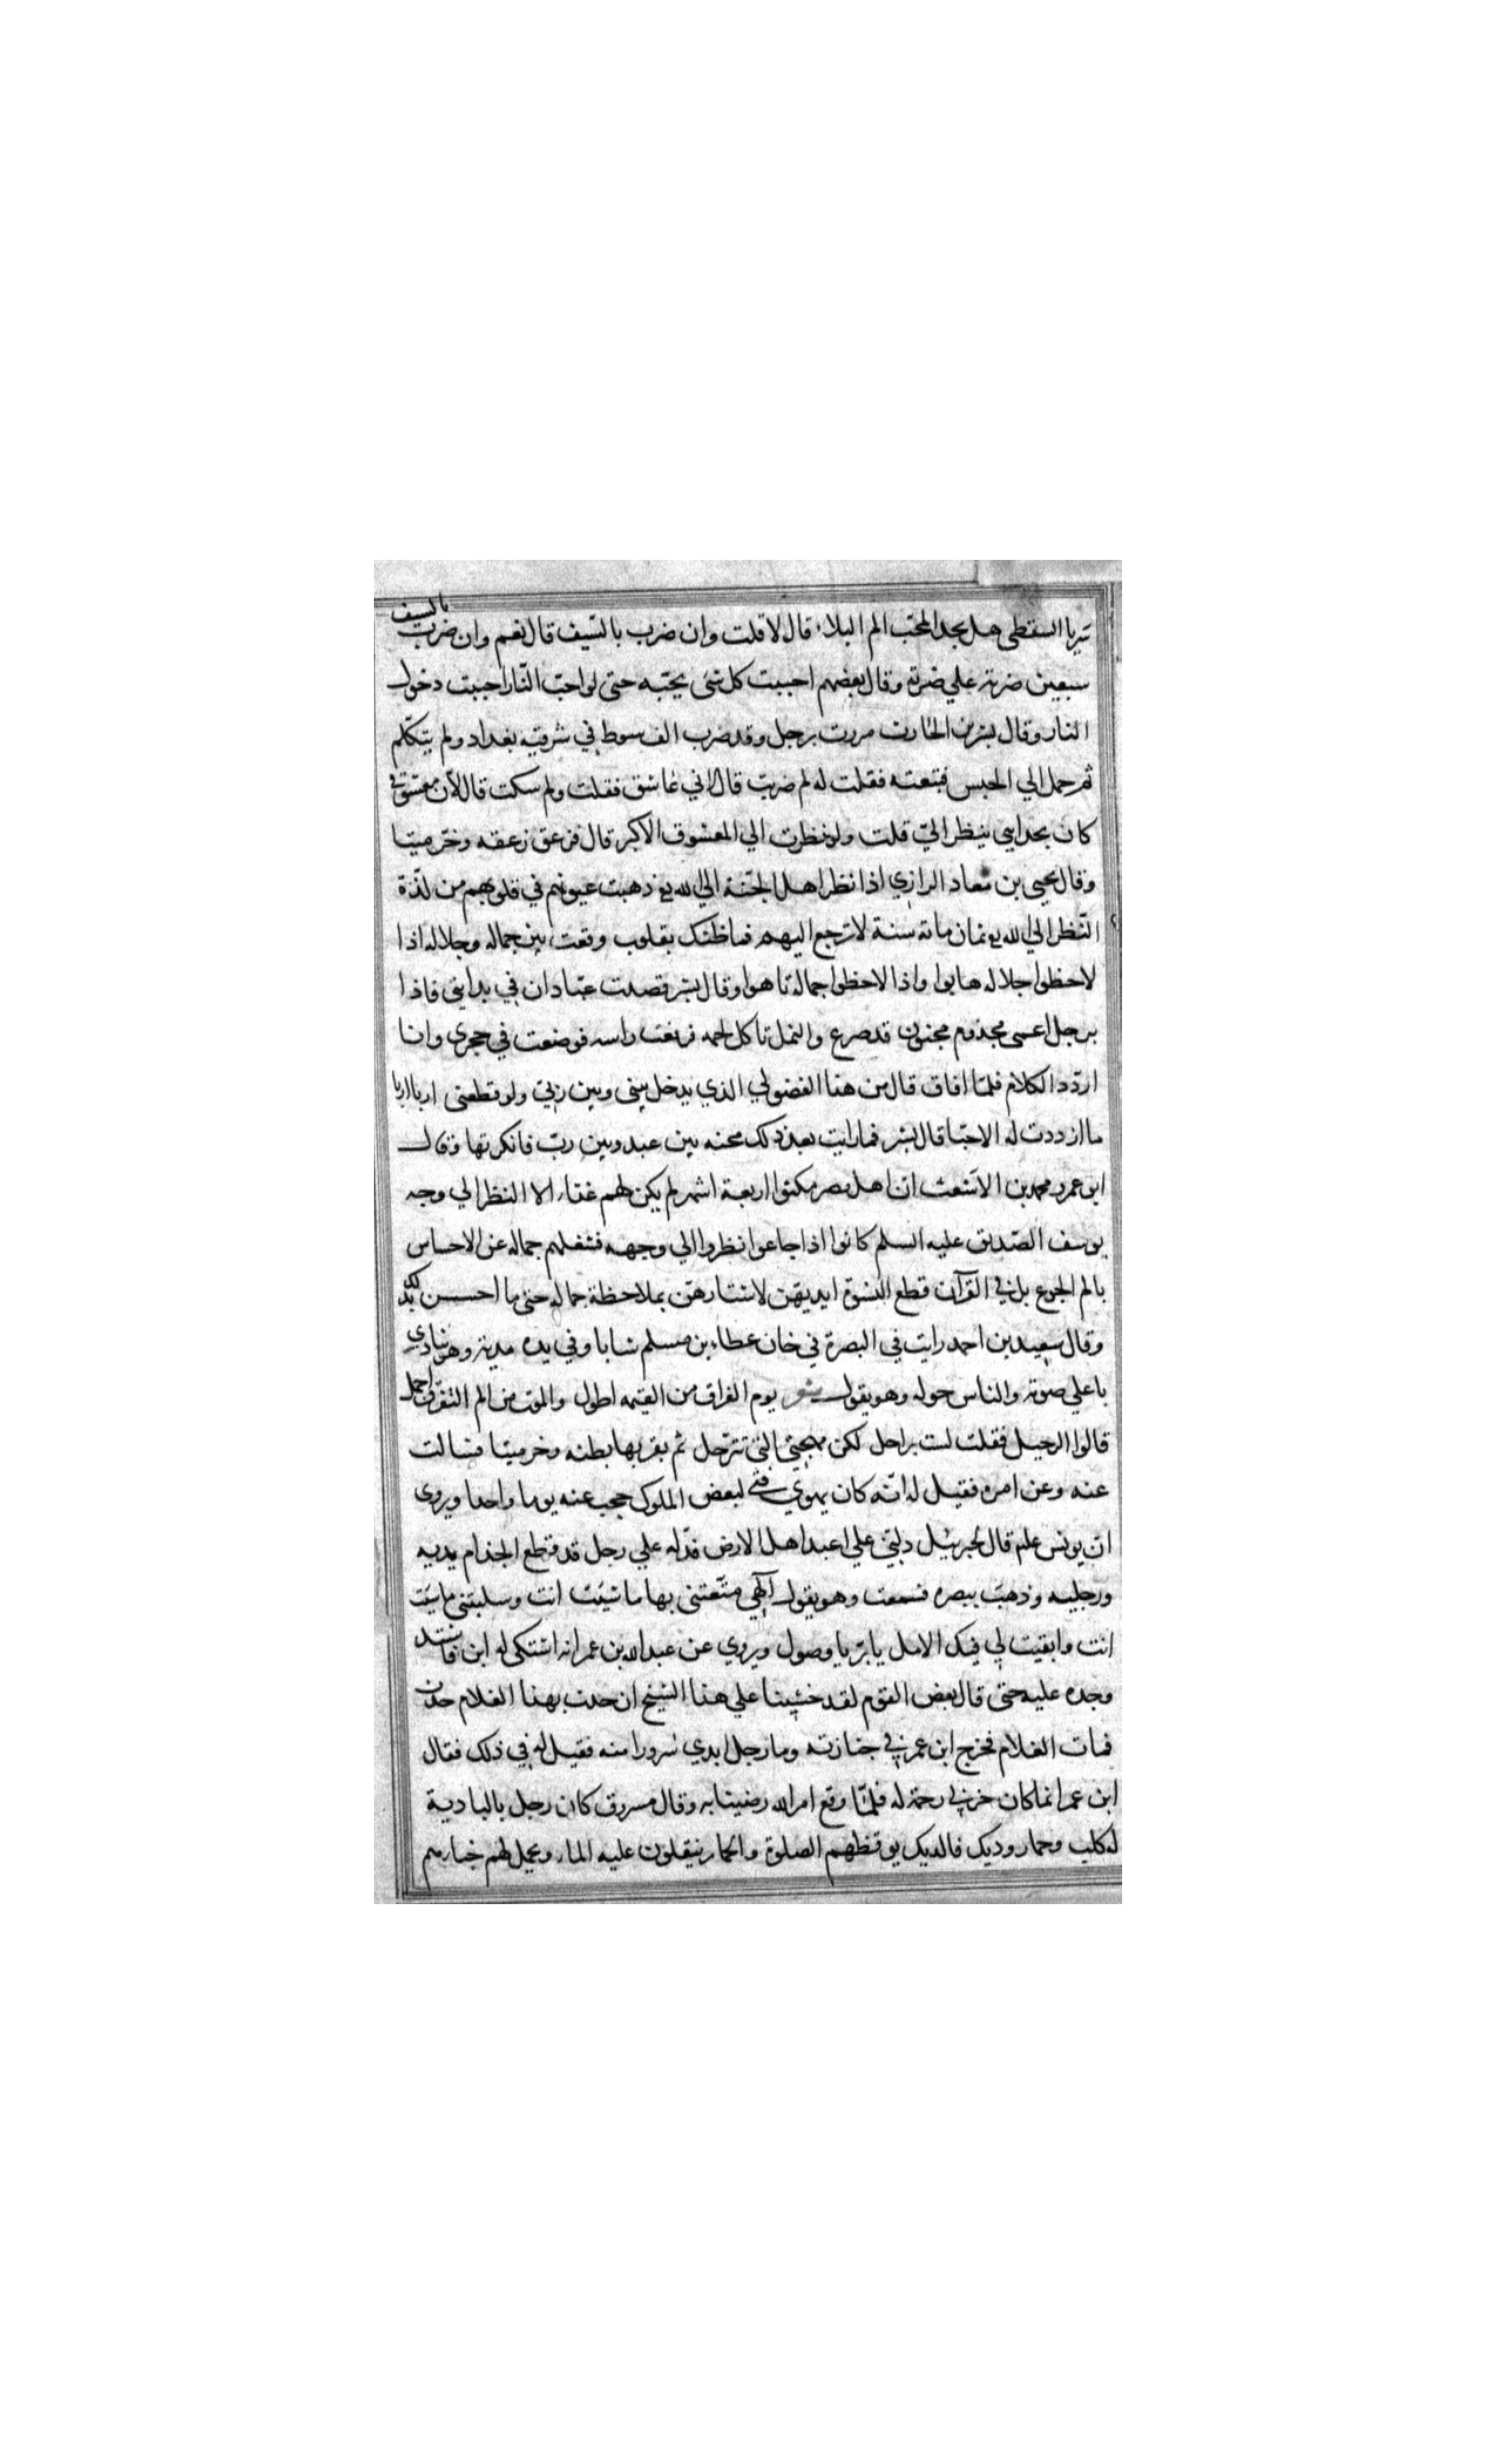 سريا السقطي هل يجد المحب الم البلاء قال لا قلت وان ضرب بالسيف قال نعم وان ضرب بالسيف
سبعين ضربة علي ضربة وقال بعضهم احببت كل شئ يحبه حتى لو احب النار احببت دخول
النار وقال بشر بن الحارث مررت برجل وقد ضرب الف سوط في شرقية بغداد ولم يتكلم
ثم حمل الي الحبس فتبعته فقلت له لم ضربت قال اني عاشق فقلت ولم سكت قال لان معشوقي
كان بحذايي ينظر الي قلت ولو نظرت الي المعشوق الاكبر قال فزعق زعقه وخر ميتا
وقال يحيى بن معاد الرازي اذا نظر اهل الجنة الي الله تع ذهبت عيونهم في قلوبهم من لذة
النظر الي الله تع ثمان مائة سنة لا ترجع اليهم فما ظنك بقلوب وقعت بين جماله وجلاله اذا
لاحظوا جلاله هابوا واذا لاحظوا جماله تاهوا وقال بشر قصدت عبادان في بدايتي فاذا
برجل اعمى مجذوم مجنون قد صرع والنمل تاكل لحمه فرفعت راسه فوضعت في حجري وانا
اردد الكلام فلما افاق قال من هذا الفضولي الذي يدخل بيني وبين ربي ولو قطعني اربا اربا
ما ازددت له الا حبا قال بشر فما رايت بعد ذلك محنه بين عبد وبين رب فانكرتها وقال
ابو عمرو محمد بن الاشعث ان اهل مصر مكثوا اربعة اشهر لم يكن لهم غذاء الا النظر الي وجه
يوسف الصديق عليه السلم كانوا اذا جاعوا نظروا الي وجهه فشغلهم جماله عن الاحساس
بالم الجوع بل في القرآن قطع النسوة ايديهن لاشتارهن بملاحظة جماله حتى ما احسسن بذلك
وقال سعيد بن احمد رايت في البصرة في خان عطاء بن مسلم شابا وفي يده مدية وهو ينادي
باعلي صوته والناس حوله وهو يقول شعر يوم الفراق من القيمه اطول والموت من الم التفرق اجمل
قالوا الرحيل فقلت لست براحل لكن مهجتي التي تترحل ثم بقر بها بطنه وخر ميتا فسالت
عنه وعن امره فقيل له انه كان يهوي فتي لبعض الملوك حجب عنه يوما واحدا ويروى
ان يونس علم قال لجبرئيل دلني علي اعبد اهل الارض فدله علي رجل قد قطع الجذام يديه
ورجليه وذهبت ببصره فسمعت وهو يقول آلهي متعتني بها ما شيئت انت وسلبتني ما شيئت
انت وابقيت لي فيك الامل يا بر يا وصول ويروي عن عبدالله بن عمر انه اشتكى له ابن فاشتد
وجده عليه حتى قال بعض القوم لقد خشينا علي هذا الشيخ ان حدث بهذا الغلام حدث
فمات الغلام فخرج ابن عمر في جنازته وما رجل ابدي سرورا منه فقيل له في ذلك فقال
ابن عمر انما كان حزني رحمة له فلما وقع امر الله رضينا به وقال مسروق كان رجل بالبادية
له كلب وحمار وديك فالديك يوقظهم الصلوة والحمار ينقلون عليه الماء ويحمل لهم خباءهم